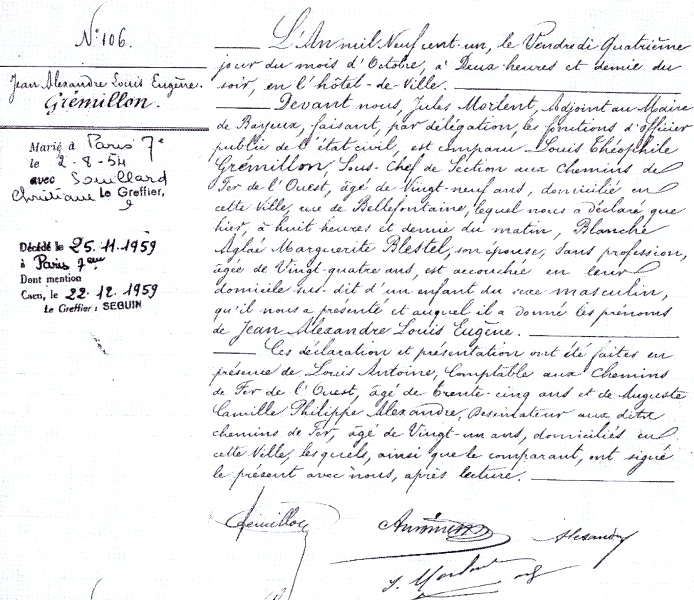 N° 106.
Jean Alexandre Louis Eugène.
Grémillon.
Marié à Paris 7e
le 2-8-54
avec Souillard
Christiane Le Greffier,
Décédé le 25.11.1959
à Paris 7eme
Dont mention
Caen, le 22.12.1959
Le Greffier : SEGUIN
L'An mil Neuf cent un, le Vendredi Quatrième
jour du mois d'Octobre, à Deux heures et demie du
soir, en l'hôtel-de-Ville.
Devant nous, Jules Morlent, Adjoint au Maire
de Bayeux, faisant, par délégation, les fonctions d'officier
public de l'état civil, est comparu Louis Théophile
Grémillon, Sous-chef de Section aux Chemins de
Fer de l'Ouest, âgé de Vingt-neuf ans, domicilié en
cette Ville, rue de Bellefontaine, lequel nous a déclaré que
hier, à huit heures et demie du matin, Blanche
Aglaé Marguerite Blestel, son épouse, sans profession,
âgée de Vingt-quatre ans, est accouchée en leur
domicile sus-dit d'un enfant du sexe masculin,
qu'il nous a présenté et auquel il a donné les prénoms
de Jean Alexandre Louis Eugène.
Ces déclaration et présentation ont été faites en
présence de Louis Antoine, Comptable aux Chemins
de Fer de l'Ouest, âgé de trente-cinq ans et de Auguste
Camille Philippe Alexandre, Dessinateur aux dits
chemins de Fer, âgé de Vingt-un ans, domiciliés en
cette Ville, lesquels, ainsi que le comparant, ont signé
le présent avec nous, après lecture.
Grémillon
Antoine
Alexandre
J. Morlent